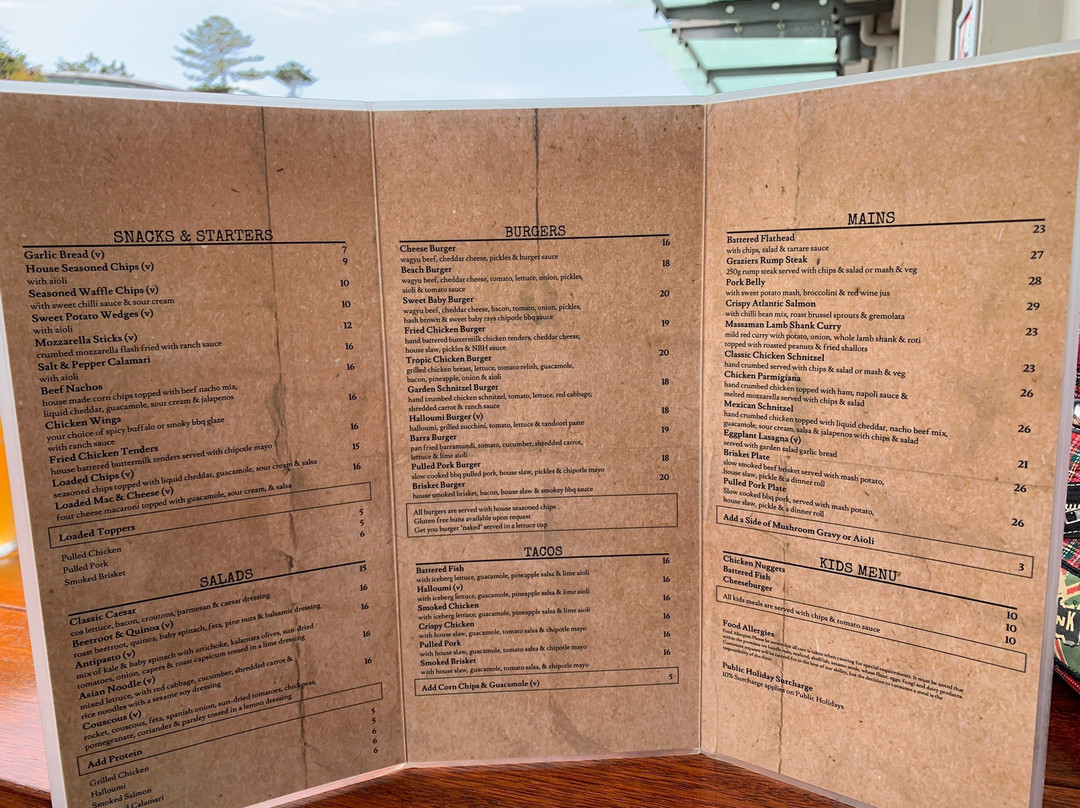 SNACKS & STARTERS
Garlic Bread (v) 7
House Seasoned Chips (v) 9
with aioli
Seasoned Waffle Chips (v) 10
with sweet chilli sauce & sour cream
Sweet Potato Wedges (v) 10
with aioli
Mozzarella Sticks (v) 12
crumbed mozzarella flash fried with ranch sauce
Salt & Pepper Calamari 16
with aioli
Beef Nachos 16
house made corn chips topped with beef nacho mix,
liquid cheddar, guacamole, sour cream & jalapenos
Chicken Wings 16
your choice of spicy buffalo or smoky bbq glaze
with ranch sauce
Fried Chicken Tenders 16
house battered buttermilk tenders served with chipotle mayo
Loaded Chips (v) 15
seasoned chips topped with liquid cheddar, guacamole, sour cream & salsa
Loaded Mac & Cheese (v) 16
four cheese macaroni topped with guacamole, sour cream, & salsa
Loaded Toppers
Pulled Chicken 5
Pulled Pork 5
Smoked Brisket 6
SALADS
Classic Caesar 15
cos lettuce, bacon, croutons, parmesan & caesar dressing
Beetroot & Quinoa (v) 16
roast beetroot, quinoa, baby spinach, feta, pine nuts & balsamic dressing
Antipasto (v) 16
mix of kale & baby spinach with artichoke, kalamata olives, sun dried
tomatoes, onion, capers & roast capsicum tossed in lime dressing
Asian Noodle (v) 16
mixed lettuce, with red cabbage, cucumber, shredded carrot &
rice noodles with a sesame soy dressing
Couscous (v) 16
rocket, couscous, feta, spanish onion, sun-dried tomatoes, chickpeas,
pomegranate, coriander & parsley tossed in a lemon dressing
Add Protein
Grilled Chicken 5
Halloumi 5
Smoked Salmon 6
Calamari 6
BURGERS
Cheese Burger 16
wagyu beef, cheddar cheese, pickles & burger sauce
Beach Burger 18
wagyu beef, cheddar cheese, tomato, lettuce, onion, pickles,
aioli & tomato sauce
Sweet Baby Burger 20
wagyu beef, cheddar cheese, bacon, tomato, onion, pickles,
hash brown & sweet baby rays chipotle bbq sauce
Fried Chicken Burger 19
hand battered buttermilk chicken tenders, cheddar cheese,
house slaw, pickles & NBH sauce
Tropic Chicken Burger 20
grilled chicken breast, lettuce, tomato relish, guacamole,
bacon, pineapple, onion & aioli
Garden Schnitzel Burger 18
hand crumbed chicken schnitzel, tomato, lettuce, red cabbage,
shredded carrot & ranch sauce
Halloumi Burger (v) 18
halloumi, grilled zucchini, tomato, lettuce & tandoori paste
Barra Burger 19
pan fried barramundi, tomato, cucumber, shredded carrot,
lettuce & lime aioli
Pulled Pork Burger 18
slow cooked bbq pulled pork, house slaw, pickles & chipotle mayo
Brisket Burger 20
house smoked brisket, bacon, house slaw & smokey bbq sauce
All burgers are served with house seasoned chips
Gluten free buns available upon request
Get you burger 'naked' served in a lettuce cup
TACOS
Battered Fish 16
with iceberg lettuce, guacamole, pineapple salsa & lime aioli
Halloumi (v) 16
with iceberg lettuce, guacamole, pineapple salsa & lime aioli
Smoked Chicken 16
with iceberg lettuce, guacamole, pineapple salsa & lime aioli
Crispy Chicken 16
with house slaw, guacamole, tomato salsa & chipotle mayo
Pulled Pork 16
with house slaw, guacamole, tomato salsa & chipotle mayo
Smoked Brisket 16
with house slaw, guacamole, tomato salsa, & chipotle mayo
Add Corn Chips & Guacamole (v) 5
MAINS
Battered Flathead 23
with chips, salad & tartare sauce
Graziers Rump Steak 27
250g rump steak served with chips & salad or mash & veg
Pork Belly 28
with sweet potato mash, broccolini & red wine jus
Crispy Atlantic Salmon 29
with chilli bean mix, roast brussel sprouts & gremolata
Massaman Lamb Shank Curry 23
mild red curry with potato, onion, whole lamb shank & roti
topped with roasted peanuts & fried shallots
Classic Chicken Schnitzel 23
hand crumbed served with chips & salad or mash & veg
Chicken Parmigiana 26
hand crumbed chicken topped with ham, napoli sauce &
melted mozzarella served with chips & salad
Mexican Schnitzel 26
hand crumbed chicken topped with liquid cheddar, nacho beef mix,
guacamole, sour cream, salsa & jalapenos with chips & salad
Eggplant Lasagna (v) 21
served with garden salad garlic bread
Brisket Plate 26
slow smoked beef brisket served with mash potato,
house slaw, pickle & a dinner roll
Pulled Pork Plate 26
Slow cooked bbq pork, served with mash potato,
house slaw, pickle & a dinner roll
Add a Side of Mushroom Gravy or Aioli 3
KIDS MENU
Chicken Nuggets 10
Battered Fish 10
Cheeseburger 10
All kids meals are served with chips & tomato sauce
Food Allergies
Food Allergies Please be aware that all care is taken when catering for special requirements. It must be noted that
within the premises we handle nuts, seafood, shellfish, sesame seeds, wheat flour, eggs, fungi and dairy products.
Customer requests will be catered for to the best of our ability, but the decision to consume a meal is the
responsibility of the diner.
Public Holiday Surcharge
10% Surcharge applies on Public Holidays